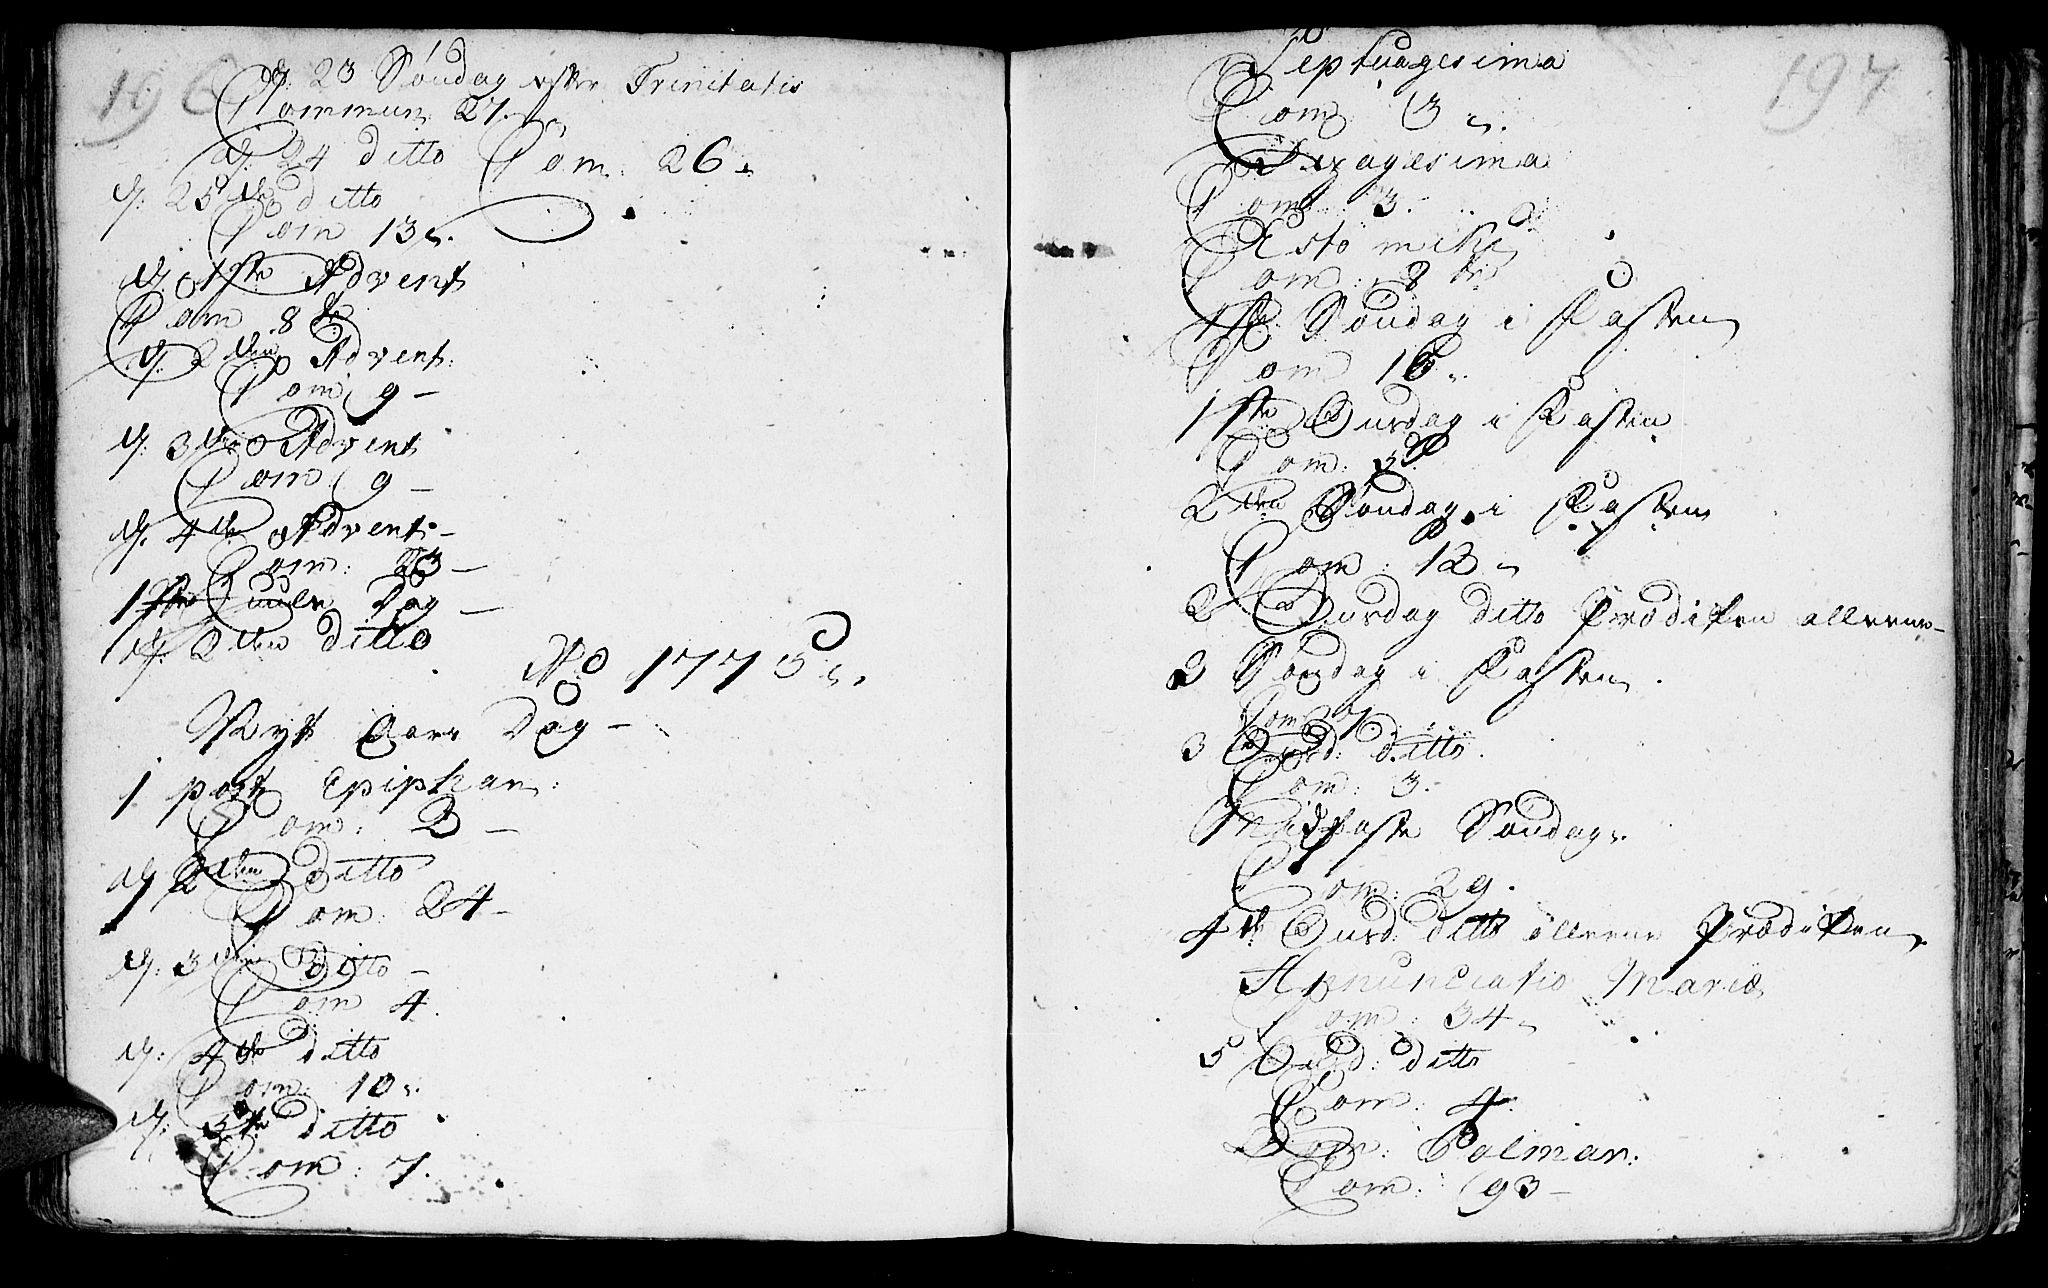 196
16
d: 23 Søndag efter Trinitatis
Commun 27.
d: 24 ditto Com: 26.
d: 25de ditto
Com 13.
d: 1ste Advent
Com 8te
d: 2den Advent:
Com 9 –
d: 3de Advent
Com 9 –
d: 4de Advent –
Com: 23 –
1ste Juule Dag –
d: 2den ditto
No 1775.
Nyt Aars Dag –
1 post Epiphan:
Com: 3 –
d 2den ditto
Com: 24 –
d: 3die Ditto –
Com 4.
d: 4de ditto
Com: 10.
d: 5te ditto
Com: 7.
197
Septuagesima
Com 3.
Sexagesima
Com: 3.
Esto mihi
Com: 8te
1ste Søndag i Fasten
Com 16.
1ste Onsdag i Fasten
Com: 3.
2den Søndag i Fasten
Com: 12.
2 Onsdag ditto Prædiken alleene –
3 Søndag i Fasten.
Com 7.
3 Onsd: ditto.
Com: 3.
Midfaste Søndag.
Com: 29.
4de Onsd: ditto alleene Prædiken
Annunciatio Mariæ
Com: 34.
5 Onsd: ditto
Com: 4.
Dom: Palmar:
Com: 93 –